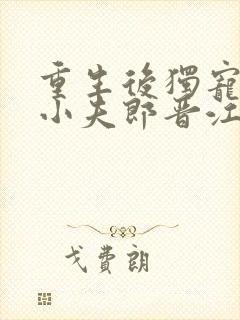 重生後獨寵
小夫郎晋江
戈費朗